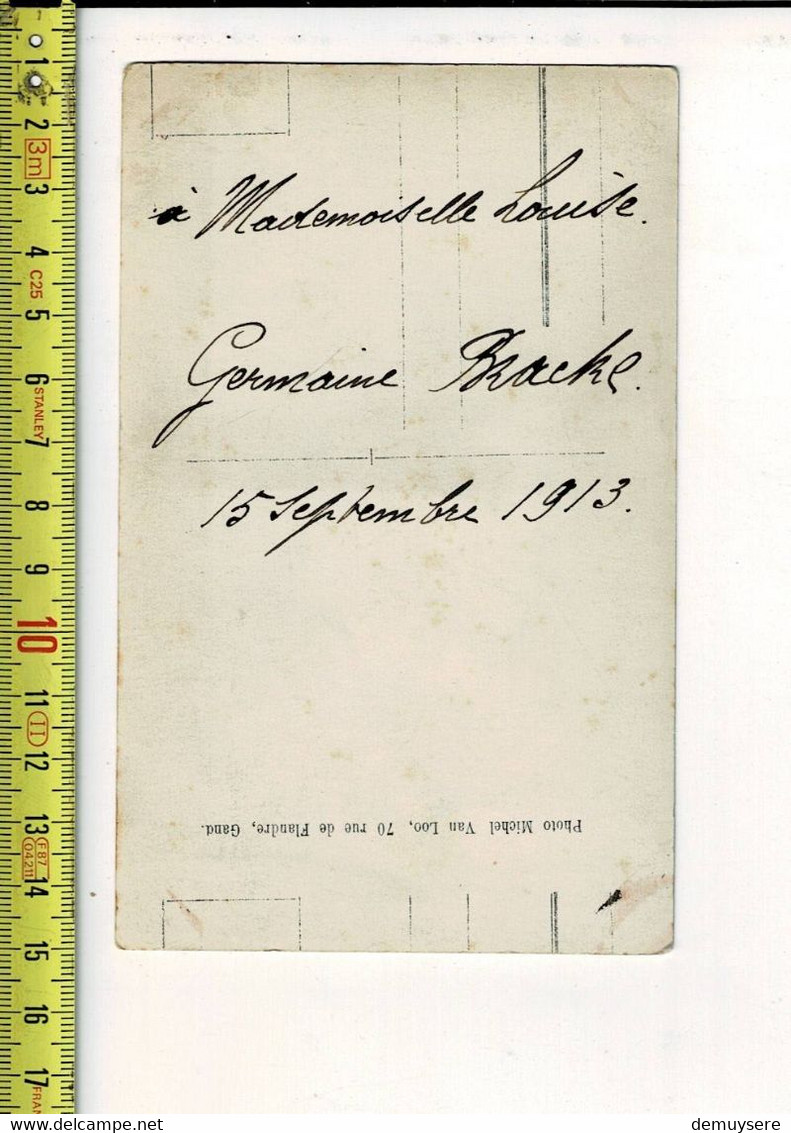 à Mademoiselle Louise.
Germaine Bracke.
15 Septembre 1913.
Photo Michel Van Loo, 70 rue de Flandre, Gand.
1
2
3m
3
4
C25
5
6
STANLEY
7
8
9
10
11
II
12
13
F87
04.211
14
15
16
17
FRAN
demuysere